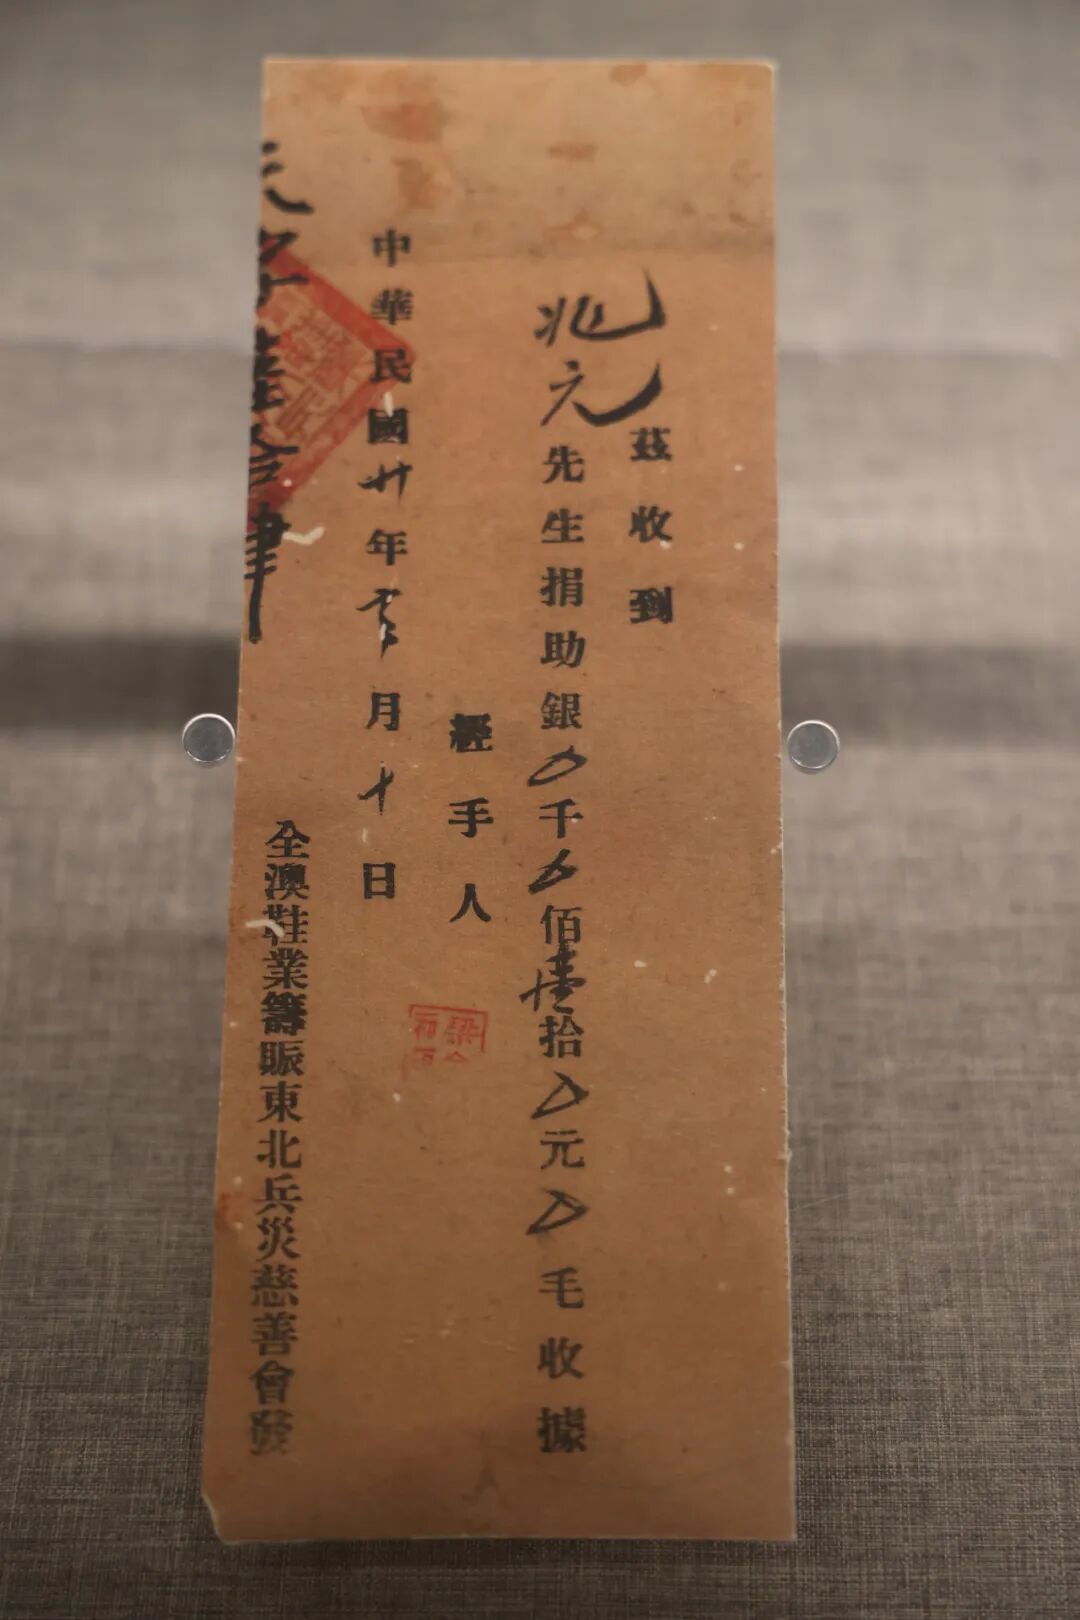 茲收到
兆元先生捐助銀〇千〇佰壹拾〇元〇毛收據
經手人
中華民國廿年 月十日
全澳鞋業籌賑東北兵災慈善會發